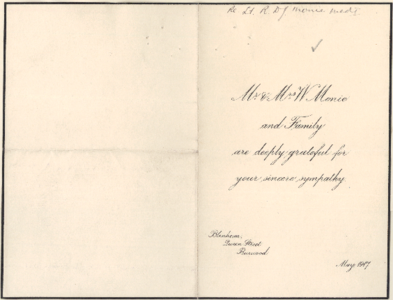 Re Lt R D J Monro
Mr & Mrs W. Monro
and Family
are deeply grateful for
your sincere sympathy.
Blenheim,
Street
May 1917